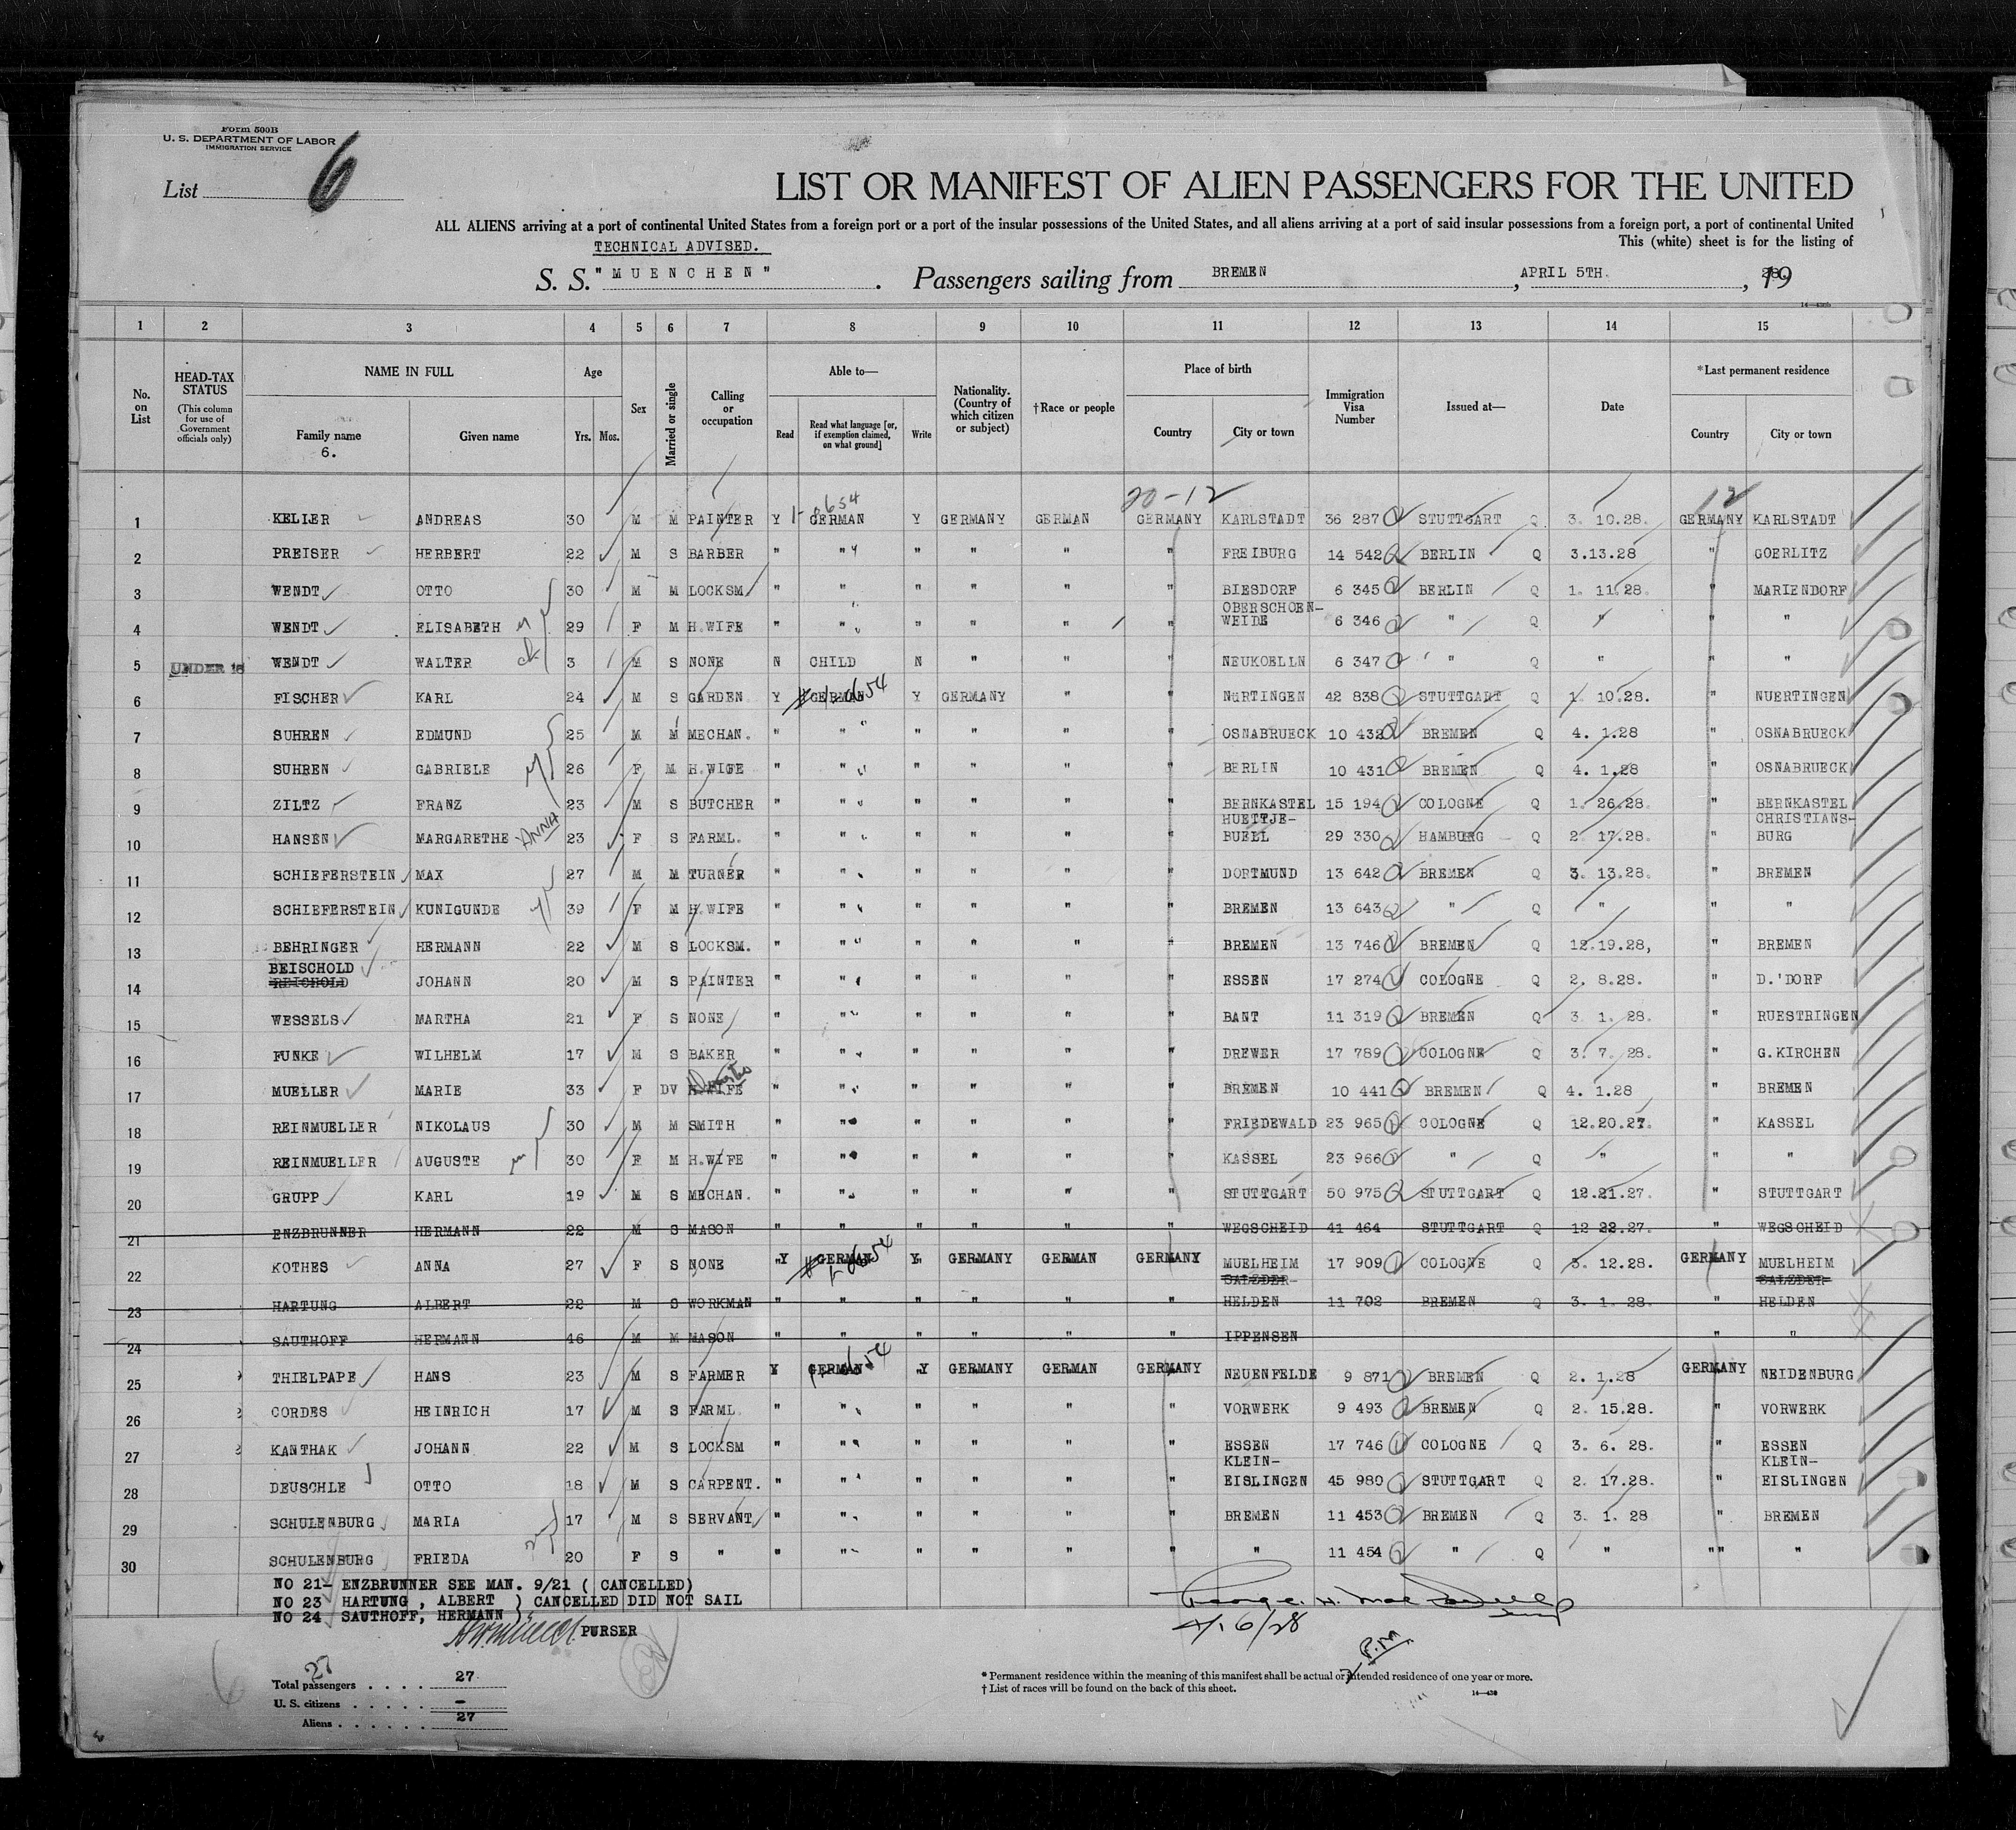 Form 500B
U. S. DEPARTMENT OF LABOR
IMMIGRATION SERVICE
List 6
LIST OR MANIFEST OF ALIEN PASSENGERS FOR THE UNITED
ALL ALIENS arriving at a port of continental United States from a foreign port or a port of the insular possessions of the United States, and all aliens arriving at a port of said insular possessions from a foreign port, a port of continental United
TECHNICAL ADVISED. This (white) sheet is for the listing of
S. S. "MUENCHEN". Passengers sailing from BREMEN, APRIL 5TH., 1928.
1 2 3 4 5 6 7 8 9 10 11 12 13 14 15
No. on List
HEAD-TAX STATUS (This column for use of Government officials only)
NAME IN FULL
Family name
6.
Given name
Age
Yrs. Mos.
Sex
Married or single
Calling or occupation
Able to—
Read
Read what language [or, if exemption claimed, on what ground]
Write
Nationality. (Country of which citizen or subject)
†Race or people
Place of birth
Country
City or town
Immigration Visa Number
Issued at—
Date
*Last permanent residence
Country
City or town
20-12 12
1 KELLER ANDREAS 30 M M PAINTER Y GERMAN Y GERMANY GERMAN GERMANY KARLSTADT 36 287 STUTTGART Q 3. 10.28. GERMANY KARLSTADT
2 PREISER HERBERT 22 M S BARBER " " " " " " FREIBURG 14 542 BERLIN Q 3.13.28 " GOERLITZ
3 WENDT OTTO 30 M M LOCKSM " " " " " " BIESDORF 6 345 BERLIN Q 1. 11.28. " MARIENDORF
4 WENDT ELISABETH 29 F M H.WIFE " " " " " " OBERSCHOEN-WEIDE 6 346 " Q " " "
5 UNDER 16 WENDT WALTER 3 M S NONE N CHILD N " " " NEUKOELLN 6 347 " Q " " "
6 FISCHER KARL 24 M S GARDEN Y GERMAN Y GERMANY " " NURTINGEN 42 838 STUTTGART Q 1. 10.28. " NUERTINGEN
7 SUHREN EDMUND 25 M M MECHAN. " " " " " " OSNABRUECK 10 432 BREMEN Q 4. 1.28 " OSNABRUECK
8 SUHREN GABRIELE 26 F M H.WIFE " " " " " " BERLIN 10 431 BREMEN Q 4. 1.28 " OSNABRUECK
9 ZILTZ FRANZ 23 M S BUTCHER " " " " " " BERNKASTEL 15 194 COLOGNE Q 1. 26.28. " BERNKASTEL
10 HANSEN MARGARETHE ANNA 23 F S FARML. " " " " " " HUETTJE-BUELL 29 330 HAMBURG Q 2. 17.28. " CHRISTIANS-BURG
11 SCHIEFERSTEIN MAX 27 M M TURNER " " " " " " DORTMUND 13 642 BREMEN Q 3. 13.28. " BREMEN
12 SCHIEFERSTEIN KUNIGUNDE 39 F M H.WIFE " " " " " " BREMEN 13 643 " Q " " "
13 BEHRINGER HERMANN 22 M S LOCKSM. " " " " " " BREMEN 13 746 BREMEN Q 12.19.28, " BREMEN
14 BEISCHOLD JOHANN 20 M S PAINTER " " " " " " ESSEN 17 274 COLOGNE Q 2. 8.28. " D.'DORF
15 WESSELS MARTHA 21 F S NONE " " " " " " BANT 11 319 BREMEN Q 3. 1. 28. " RUESTRINGEN
16 FUNKE WILHELM 17 M S BAKER " " " " " " DREWER 17 789 COLOGNE Q 3. 7. 28. " G.KIRCHEN
17 MUELLER MARIE 33 F DV H.WIFE " " " " " " BREMEN 10 441 BREMEN Q 4. 1.28 " BREMEN
18 REINMUELLER NIKOLAUS 30 M M SMITH " " " " " " FRIEDEWALD 23 965 COLOGNE Q 12.20.27. " KASSEL
19 REINMUELLER AUGUSTE 30 F M H.WIFE " " " " " " KASSEL 23 966 " Q " " "
20 GRUPP KARL 19 M S MECHAN. " " " " " " STUTTGART 50 975 STUTTGART Q 12.21.27. " STUTTGART
21 ENZBRUNNER HERMANN 22 M S MASON " " " " " " WEGSCHEID 41 464 STUTTGART Q 12 22.27. " WEGSCHEID
22 KOTHES ANNA 27 F S NONE Y GERMAN Y GERMANY GERMAN GERMANY MUELHEIM 17 909 COLOGNE Q 3. 12.28. GERMANY MUELHEIM
23 HARTUNG ALBERT 22 M S WORKMAN " " " " " " SALZDER-HELDEN 11 702 BREMEN Q 3. 1. 28. " SALZDER-HELDEN
24 SAUTHOFF HERMANN 46 M M MASON " " " " " " IPPENSEN " "
25 THIELPAPE HANS 23 M S FARMER Y GERMAN Y GERMANY GERMAN GERMANY NEUENFELDE 9 871 BREMEN Q 2. 1.28 GERMANY NEIDENBURG
26 CORDES HEINRICH 17 M S FARML " " " " " " VORWERK 9 493 BREMEN Q 2. 15.28. " VORWERK
27 KANTHAK JOHANN 22 M S LOCKSM " " " " " " ESSEN 17 746 COLOGNE Q 3. 6. 28. " ESSEN
28 DEUSCHLE OTTO 18 M S CARPENT. " " " " " " KLEIN-EISLINGEN 45 980 STUTTGART Q 2. 17.28. " KLEIN-EISLINGEN
29 SCHULENBURG MARIA 17 M S SERVANT " " " " " " BREMEN 11 453 BREMEN Q 3. 1. 28 " BREMEN
30 SCHULENBURG FRIEDA 20 F S " " " " " " " " 11 454 " Q " "" "
NO 21- ENZBRUNNER SEE MAN. 9/21 ( CANCELLED)
NO 23 HARTUNG , ALBERT ) CANCELLED DID NOT SAIL
NO 24 SAUTHOFF, HERMANN )
PURSER
4/16/28
2 P.M.
Total passengers . . . . 27
27
U. S. citizens . . . . . -
Aliens . . . . . . 27
* Permanent residence within the meaning of this manifest shall be actual or intended residence of one year or more.
† List of races will be found on the back of this sheet.